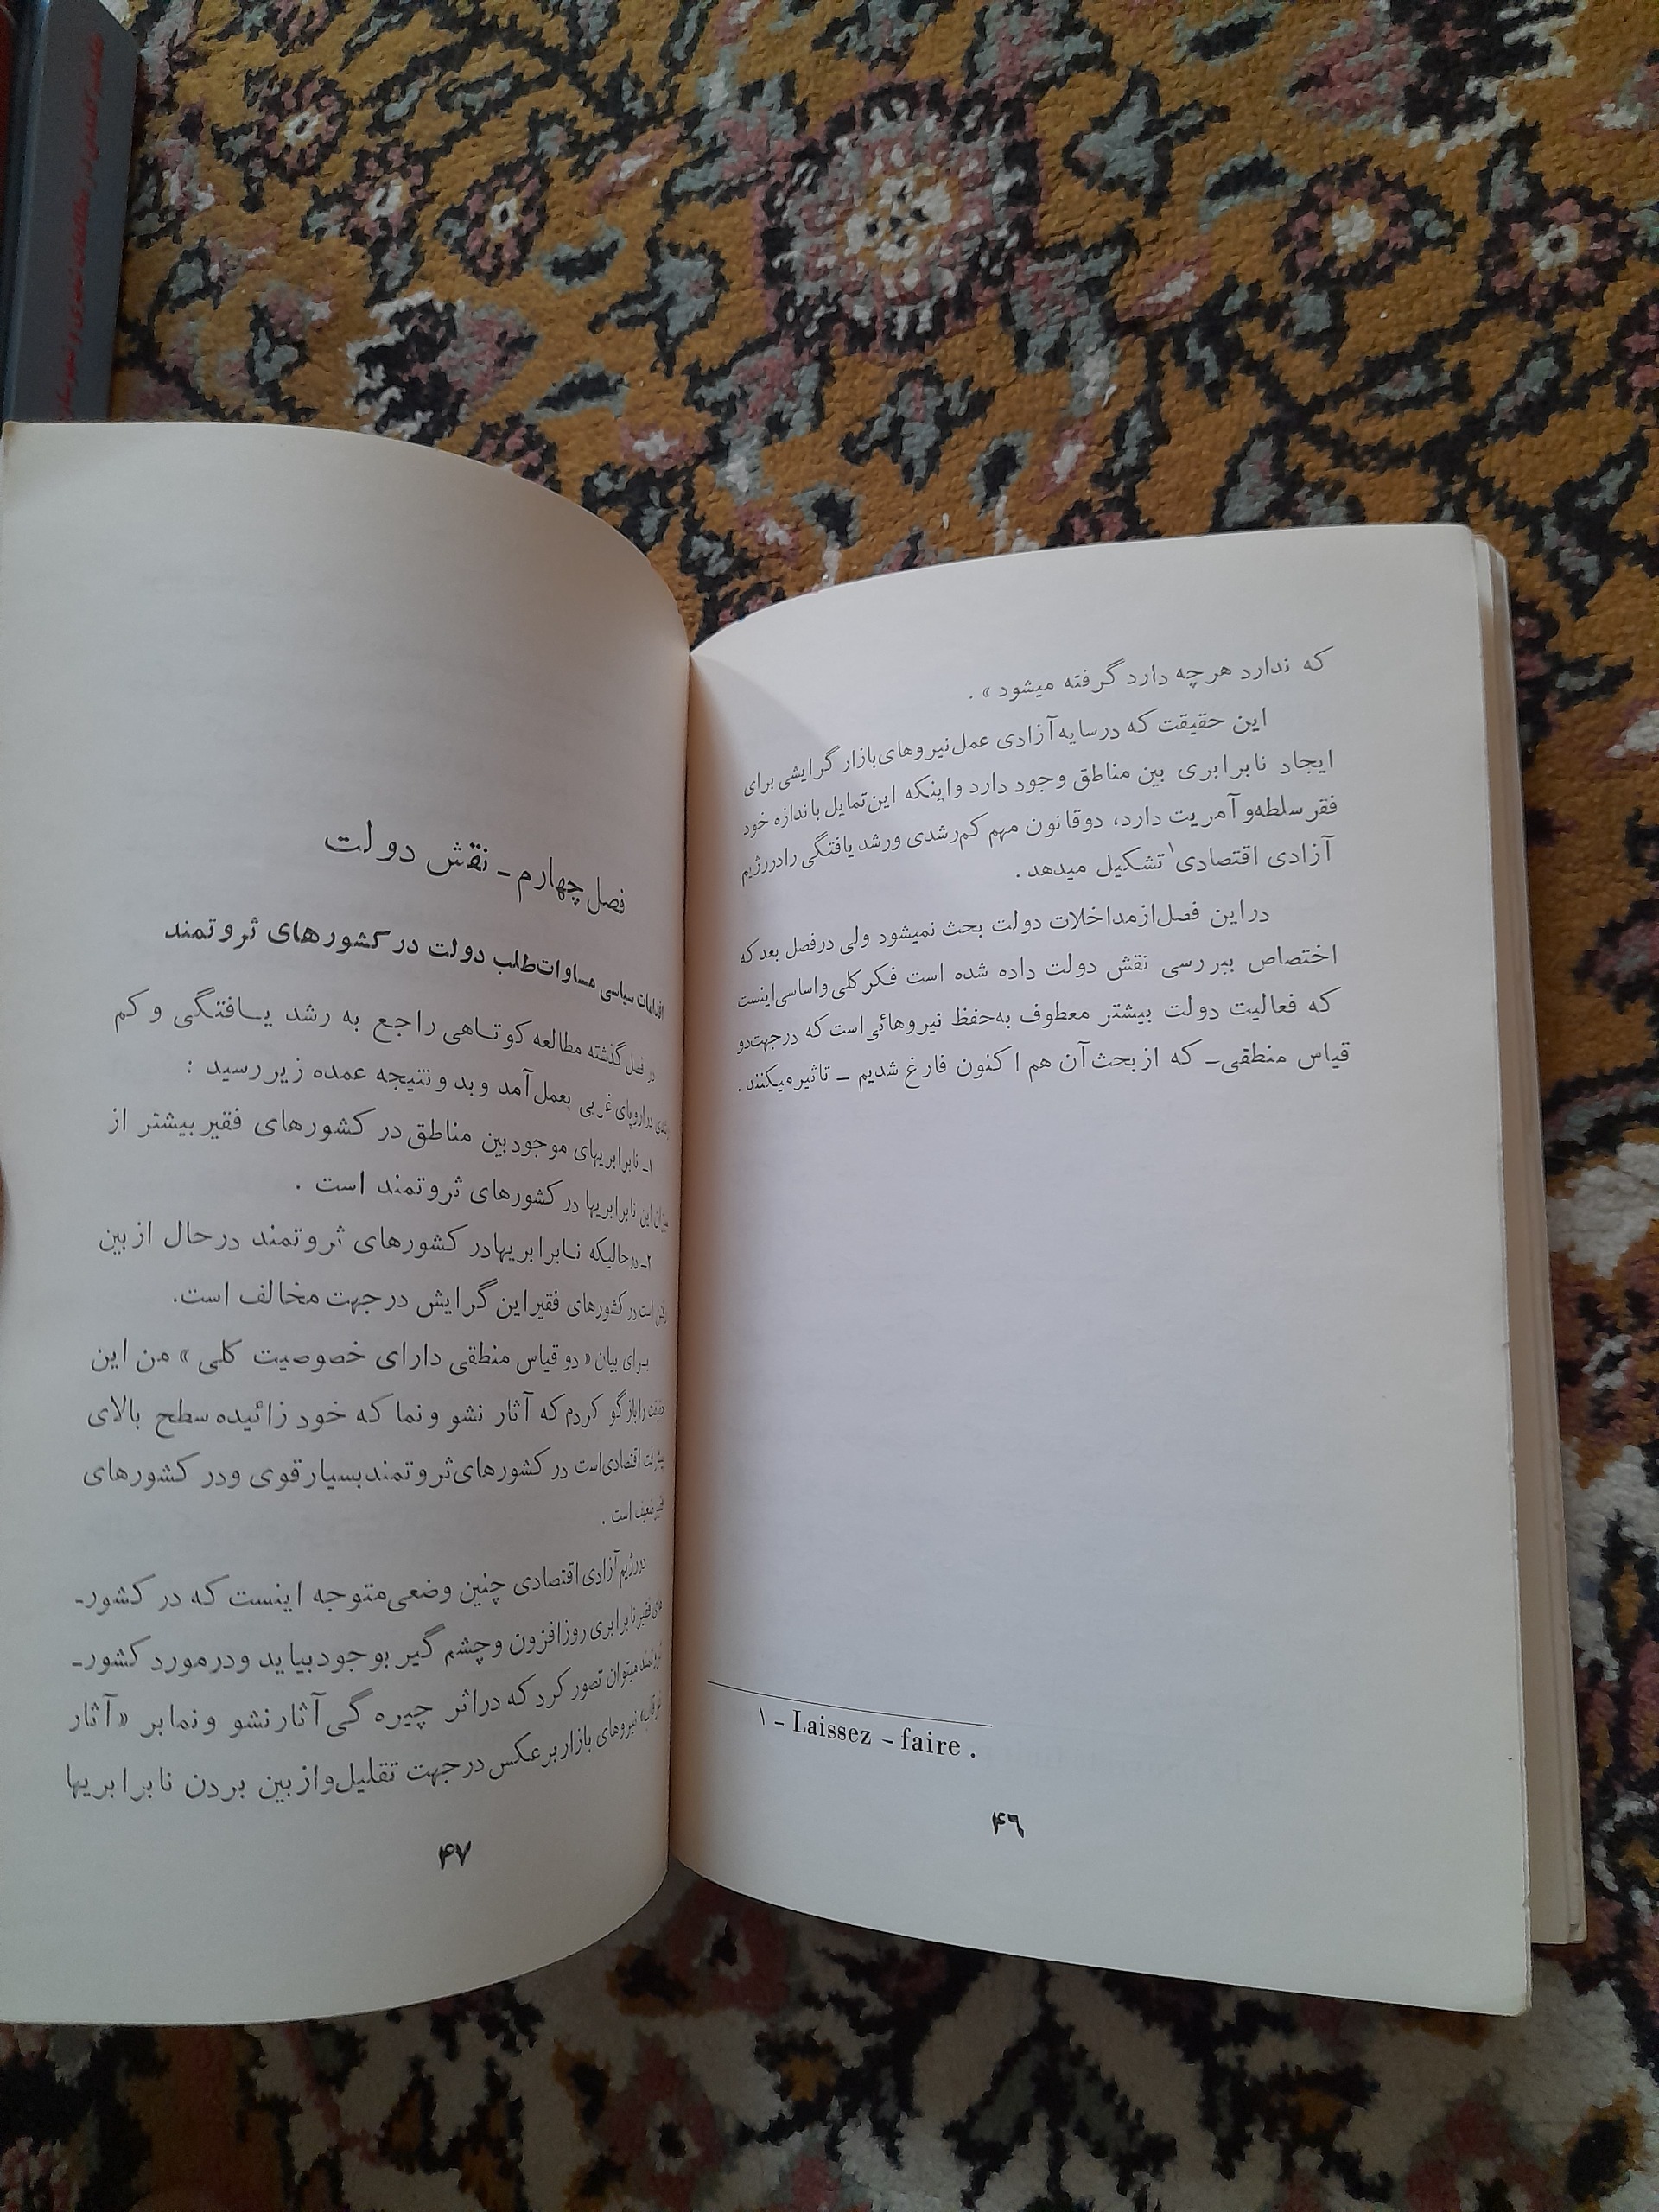 که ندارد هرچه دارد گرفته میشود» .
این حقیقت که درسایه آزادی عمل نیروهای بازار گرایشی برای
ایجاد نابرابری بین مناطق وجود دارد واینکه این تمایل باندازه خود
فقر سلطه و آمریت دارد، دوقانون مهم کم رشدی ورشد یافتگی رادررژیم
آزادی اقتصادی۱ تشکیل میدهد .
دراین فصل ازمداخلات دولت بحث نمیشود ولی درفصل بعد که
اختصاص ببررسی نقش دولت داده شده است فکر کلی واساسی اینست
که فعالیت دولت بیشتر معطوف به حفظ نیروهائی است که درجهت دو
قیاس منطقی ـ که از بحث آن هم اکنون فارغ شدیم ـ تاثیر میکنند .
۱ - Laissez - faire .
۴٦
فصل چهارم ـ نقش دولت
اقدامات سیاسی مساوات طلب دولت در کشورهای ثروتمند
در فصل گذشته مطالعه کوتاهی راجع به رشد یافتگی و کم
رشدی در اروپای غربی بعمل آمد و بد و نتیجه عمده زیر رسید :
۱ـ نابرابریهای موجود بین مناطق در کشورهای فقیر بیشتر از
میزان این نابرابریها در کشورهای ثروتمند است .
۲ـ درحالیکه نابرابریهادر کشورهای ثروتمند درحال ازبین
رفتن است در کشورهای فقیراین گرایش درجهت مخالف است.
برای بیان «دو قیاس منطقی دارای خصوصیت کلی» من این
حقیقت را بازگو کردم که آثار نشو و نما که خود زائیده سطح بالای
پیشرفت اقتصادی است در کشورهای ثروتمند بسیار قوی ودر کشورهای
فقیر ضعیف است .
دررژیم آزادی اقتصادی چنین وضعی متوجه اینست که در کشور-
های فقیر نابرابری روزافزون وچشم گیر بوجود بیاید ودرمورد کشور-
ثروتمند میتوان تصور کرد که دراثر چیره گی آثار نشو و نما بر «آثار
نیروهای بازار برعکس درجهت تقلیل وازبین بردن نابرابریها
۴۷